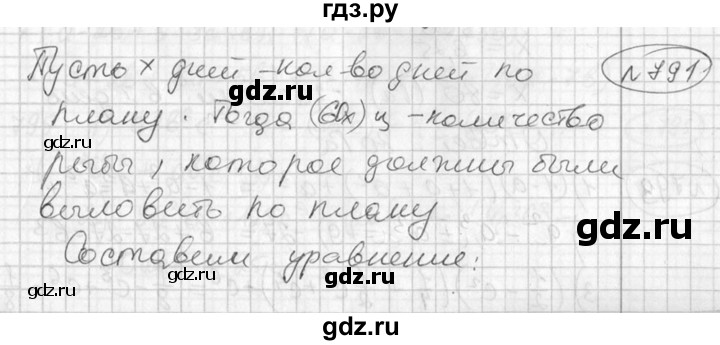 гдз.ру
Пусть x дней - кол-во дней по №791
плану. Тогда (60x) ц - количество
рыбы, которое должны были
выловить по плану
gdz.ru
Составим уравнение:
gdz.ru gdz.ru
gdz.ru